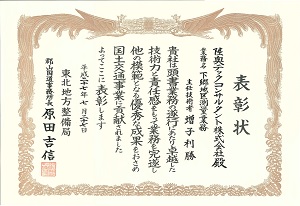 表彰状
陸奥テックコンサルタント株式会社殿
業務名 下郷地区測量業務
主任技術者 増子利勝
貴社は頭書業務の遂行にあたり卓越した
技術力と責任感をもって業務を完遂し
他の模範となる優秀な成果をおさめ
国土交通事業に貢献されました
よってここに表彰します
平成二十七年七月二十一日
東北地方整備局
郡山国道事務所長 原田吉信